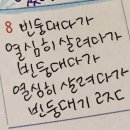 8 빈둥대다가
열심히 살려다가
빈둥대다가
열심히 살려다가
빈둥대기 ㄹㅈㄷ